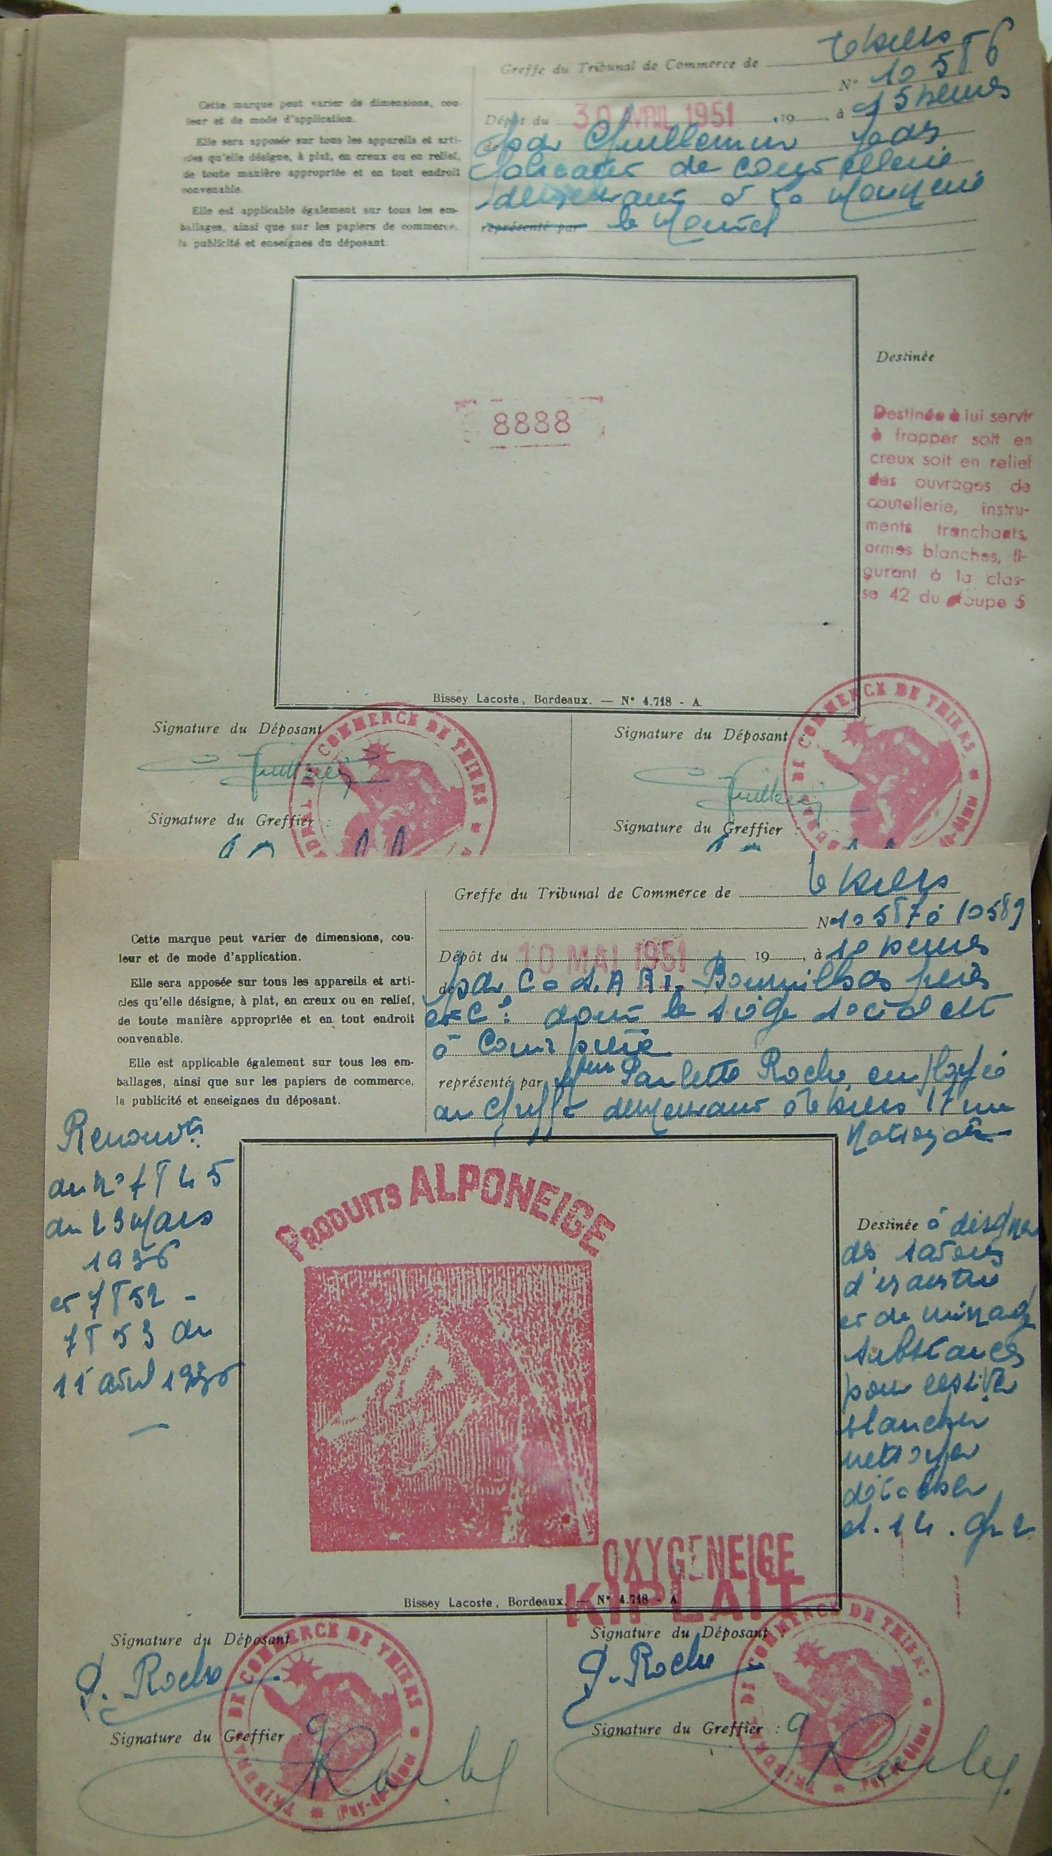 Greffe du Tribunal de Commerce de Thiers
N° 10586
Cette marque peut varier de dimensions, cou-
leur et de mode d'application.
Elle sera apposée sur tous les appareils et arti-
cles qu'elle désigne, à plat, en creux ou en relief,
de toute manière appropriée et en tout endroit
convenable.
Elle est applicable également sur tous les em-
ballages, ainsi que sur les papiers de commerce,
la publicité et enseignes du déposant.
Dépôt du 30 AVRIL 1951 19 , à 15 heures
par Guillemin
fabricant de coutellerie
demeurant à La Monnerie
représenté par le Montel
8888
Destinée
Destinée à lui servir
à frapper soit en
creux soit en relief
des ouvrages de
coutellerie, instru-
ments tranchants,
armes blanches, fi-
gurant à la clas-
se 42 du groupe 5
Bissey Lacoste, Bordeaux. — N° 4.718 - A
Signature du Déposant
Signature du Déposant
TRIBUNAL DE COMMERCE DE THIERS
TRIBUNAL DE COMMERCE DE THIERS
Signature du Greffier :
Signature du Greffier :
Greffe du Tribunal de Commerce de Thiers
N° 10587 à 10589
Cette marque peut varier de dimensions, cou-
leur et de mode d'application.
Elle sera apposée sur tous les appareils et arti-
cles qu'elle désigne, à plat, en creux ou en relief,
de toute manière appropriée et en tout endroit
convenable.
Elle est applicable également sur tous les em-
ballages, ainsi que sur les papiers de commerce,
la publicité et enseignes du déposant.
Dépôt du 10 MAI 1951 19 , à 10 heures
par la S.A.R.L. frères
et Cie dont le siège social est
à Courpière
représenté par Paulette Roche employée
au greffe demeurant à Thiers 17 rue
Nationale
Renouv
du n° 7545
du 23 Mars
1936
et 7552 -
7553 du
11 avril 1936
PRODUITS ALPONEIGE
OXYGENEIGE
KIPLAIT
Destinée à désigner
des savons
d'industrie
et de ménage
substances
pour lessiver
blanchir
nettoyer
détacher
cl. 14. gr 2
Bissey Lacoste, Bordeaux. — N° 4.718 - A
Signature du Déposant
Signature du Déposant :
P. Roche
P. Roche
Signature du Greffier :
Signature du Greffier :
TRIBUNAL DE COMMERCE DE THIERS (Puy-de-Dôme)
TRIBUNAL DE COMMERCE DE THIERS (Puy-de-Dôme)